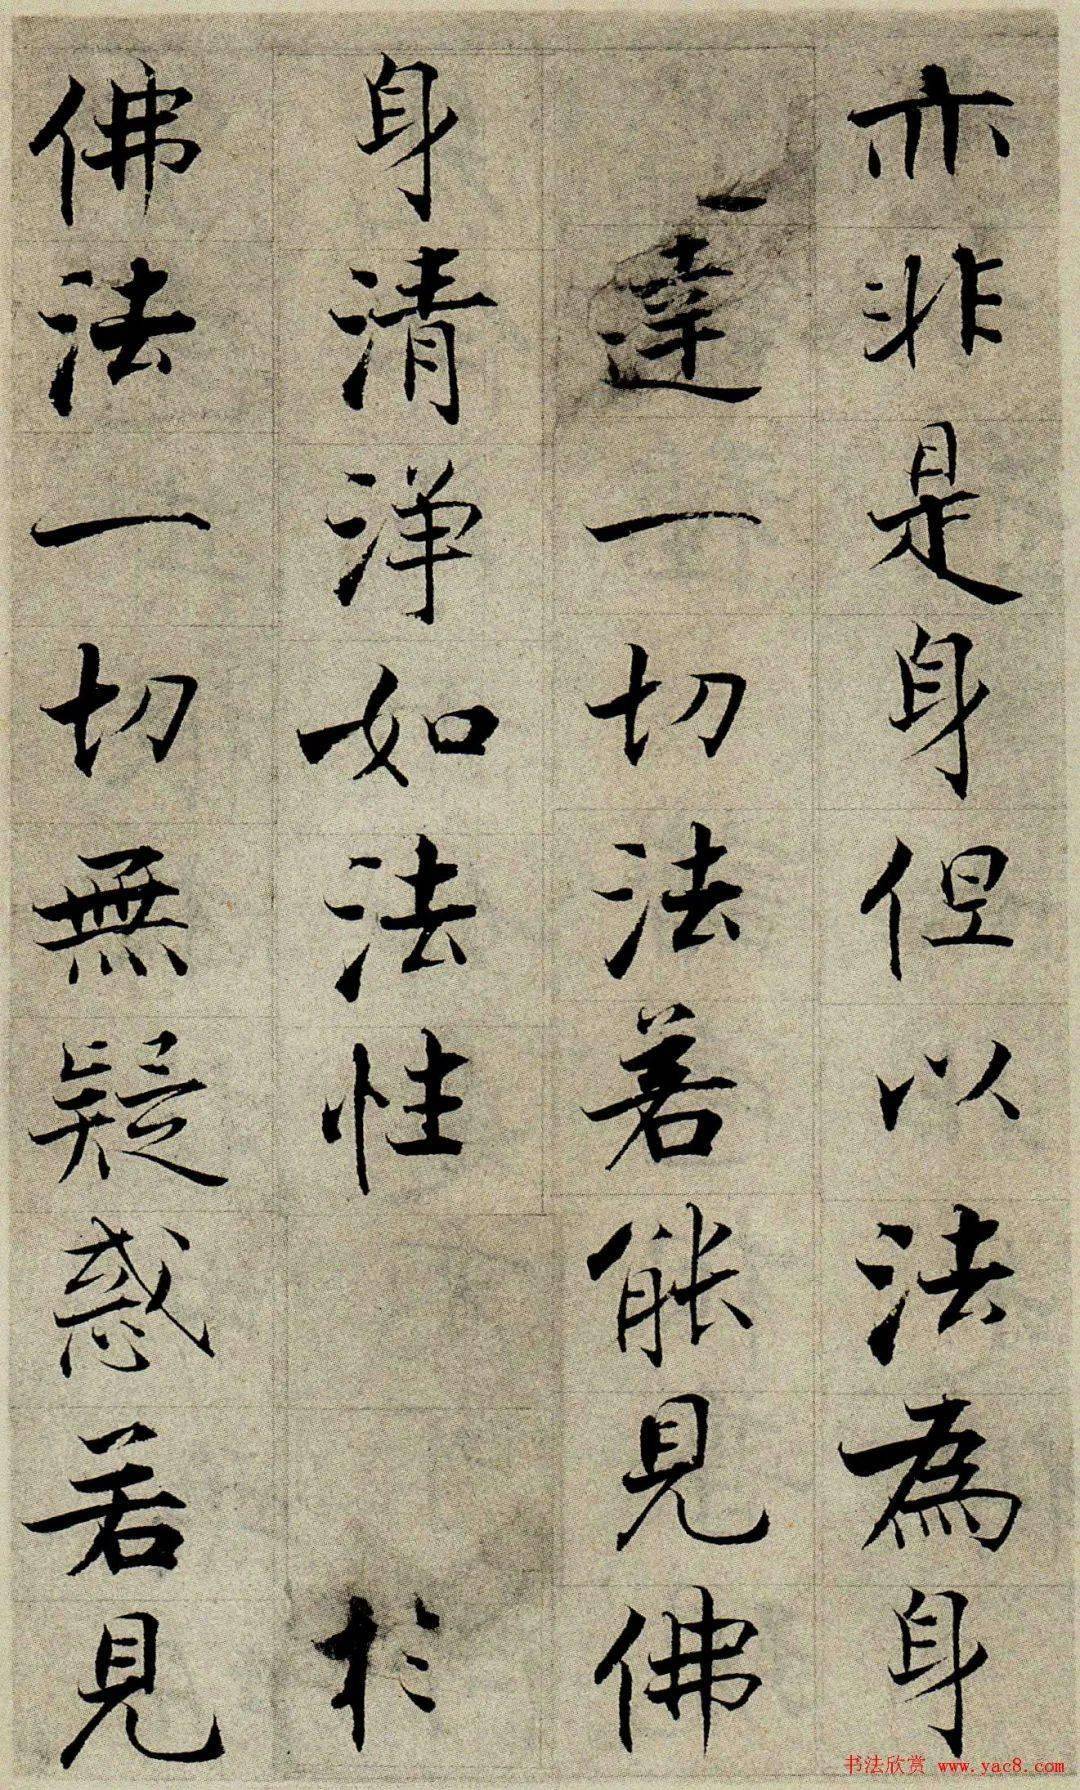 亦非是身但以法為身
達一切法若能見佛
身清淨如法性於
佛法一切無疑惑若見
书法欣赏 www.yac8.com